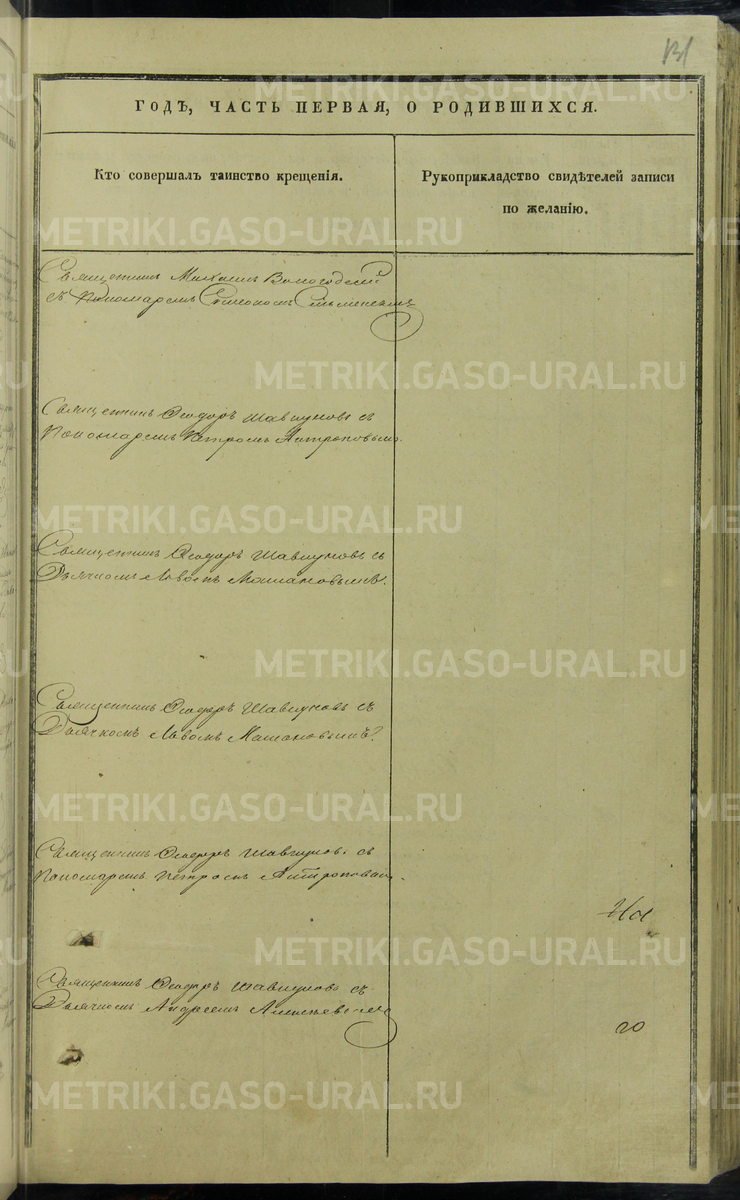 131
ГОДЪ, ЧАСТЬ ПЕРВАЯ, О РОДИВШИХСЯ.
Кто совершалъ таинство крещенія.
Рукоприкладство свидѣтелей записи
по желанію.
Священникъ Михаилъ Вологодскій
съ Пономаремъ
Священникъ Ѳеодоръ Шавкуновъ съ
Пономаремъ Петромъ Антроповымъ.
Священникъ Ѳеодоръ Шавкуновъ съ
Дьячкомъ Львомъ
Священникъ Ѳеодоръ Шавкуновъ съ
Дьячкомъ Львомъ
Священникъ Ѳеодоръ Шавкуновъ съ
Пономаремъ Петромъ Антроповымъ.
Священникъ Ѳеодоръ Шавкуновъ съ
Дьячкомъ Андреемъ
го
METRIKI.GASO-URAL.RU